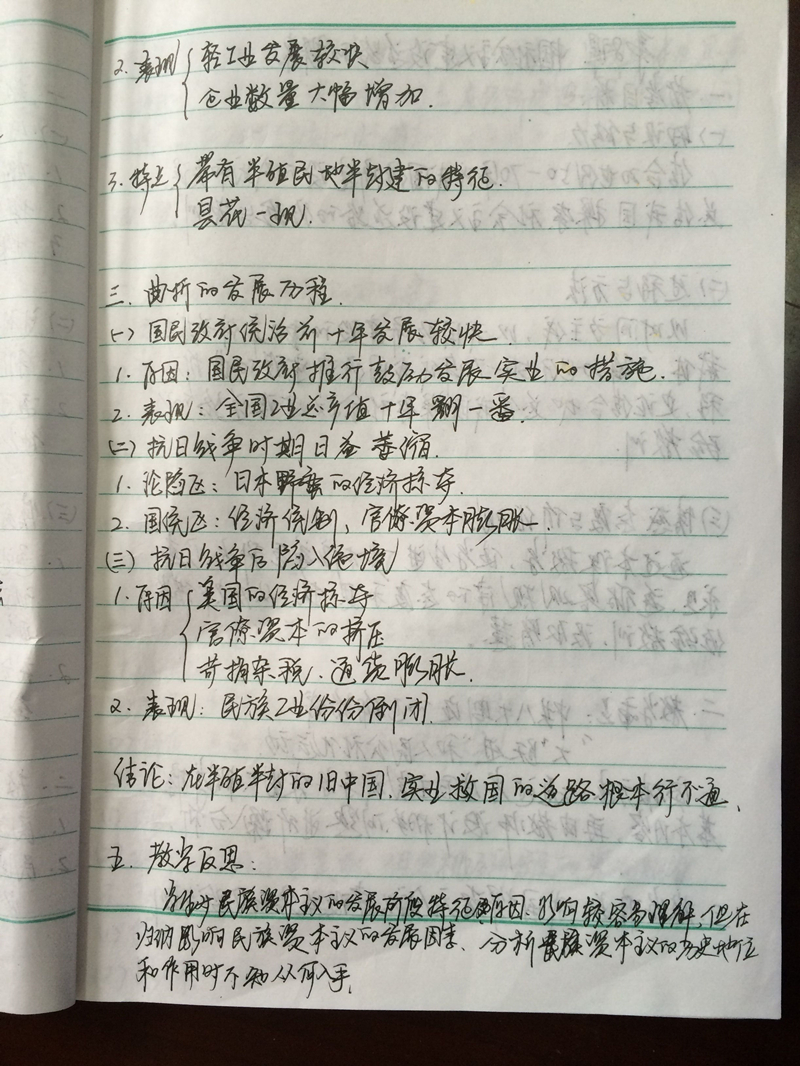 2. 表现 { 轻工业发展较快
企业数量大幅增加.
3. 特点 { 带有半殖民地半封建的特征.
昙花一现.
三. 曲折的发展历程.
(一) 国民政府统治前十年发展较快.
1. 原因: 国民政府推行鼓励发展实业的措施.
2. 表现: 全国工业总产值十年翻一番.
(二) 抗日战争时期日益萎缩.
1. 沦陷区: 日本野蛮的经济掠夺.
2. 国统区: 经济统制, 官僚资本膨胀.
(三) 抗日战争后陷入绝境
1. 原因 { 美国的经济掠夺
官僚资本的挤压
苛捐杂税. 通货膨胀.
2. 表现: 民族工业纷纷倒闭.
结论: 在半殖半封的旧中国, 实业救国的道路根本行不通.
五. 教学反思:
学生对民族资本主义的发展阶段特征原因. 影响较容易理解, 但在
归纳影响民族资本主义的发展因素、分析民族资本主义的历史地位
和作用时不知从何入手.